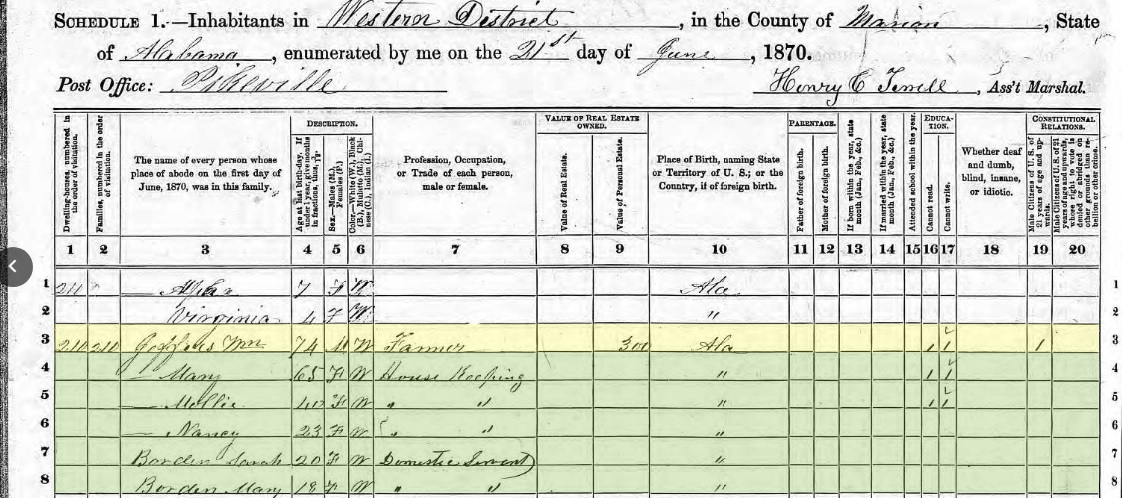 SCHEDULE 1.—Inhabitants in Western District, in the County of Marion, State
of Alabama, enumerated by me on the 21st day of June, 1870.
Post Office: Pikeville Henry C Terrell, Ass't Marshal.
DESCRIPTION. VALUE OF REAL ESTATE OWNED. PARENTAGE. EDUCATION. CONSTITUTIONAL RELATIONS.
Dwelling-houses, numbered in the order of visitation.
Families, numbered in the order of visitation.
The name of every person whose place of abode on the first day of June, 1870, was in this family.
Age at last birth-day. If under 1 year, give months in fractions, thus,
Sex.—Males (M.), Females (F.)
Color.—White (W.), Black (B.), Mulatto (M.), Chinese (C.), Indian (I.)
Profession, Occupation, or Trade of each person, male or female.
Value of Real Estate.
Value of Personal Estate.
Place of Birth, naming State or Territory of U. S.; or the Country, if of foreign birth.
Father of foreign birth.
Mother of foreign birth.
If born within the year, state month (Jan., Feb., &c.)
If married within the year, state month (Jan., Feb., &c.)
Attended school within the year.
Cannot read.
Cannot write.
Whether deaf and dumb, blind, insane, or idiotic.
Male Citizens of U. S. of 21 years of age and upwards.
Male Citizens of U. S. of 21 years of age and upwards, whose right to vote is denied or abridged on other grounds than rebellion or other crime.
1 2 3 4 5 6 7 8 9 10 11 12 13 14 15 16 17 18 19 20
1 7 F W Ala 1
2 Virginia 4 F W " 2
3 Wm 74 M W Farmer 300 Ala 1 1 1 3
4 — Mary 65 F W House Keeping " 1 1 4
5 — Mollie 40 F W " " " 1 1 5
6 — Nancy 23 F W " " " 6
7 Borden Sarah 20 F W Domestic Servant " 7
8 Borden Mary 18 F W " " " 8